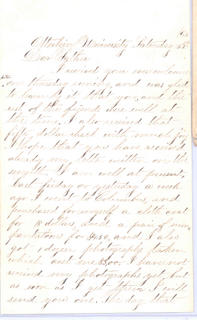 Otterbein University Saturday 25
Dear Father
I received your
on Thursday
to hear it that you and the
rest of the friends are well at
the time. I also received that
fifty dollar check with much joy
I hope that you have received
already my letter written on the
I am well at present.
Last friday or yesterday a week
ago I went to Columbus, and
purchased for myself a cloth coat
for dollars, and a pair of new
pantaloons for and I also
got 1 dozen photographs taken
which cost me $ I have not
received my photographs yet, but
as soon as I get them I will
send you one. The day that